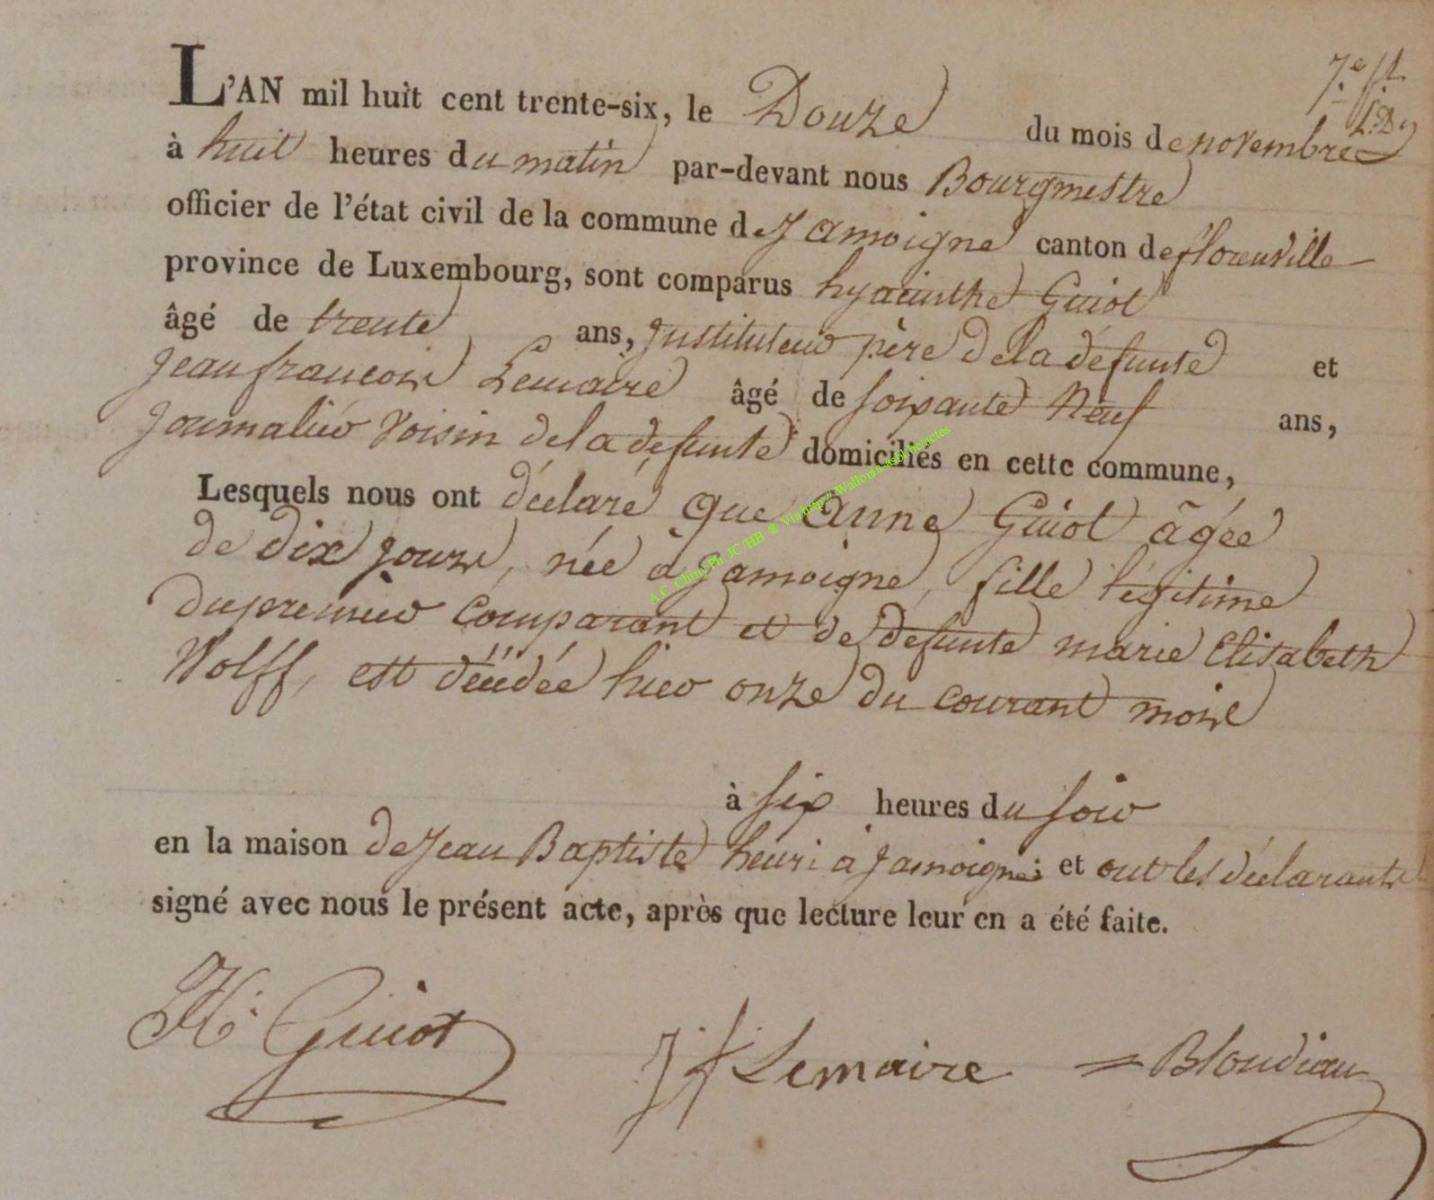 7.e ft.
L'AN mil huit cent trente-six, le Douze du mois de novembre
à huit heures du matin par-devant nous Bourgmestre
officier de l'état civil de la commune de Jamoigne canton de florenville
province de Luxembourg, sont comparus hyacinthe Guiot
âgé de trente ans, Instituteur père de la défunte et
Jean françois Lemaire âgé de soixante Neuf ans,
Journalier Voisin de la défunte domiciliés en cette commune,
Lesquels nous ont déclaré que anne Guiot âgée
de dix jours, née à Jamoigne, fille légitime
du premier comparant et de défunte marie Elisabeth
Wolff, est décédée hier onze du courant mois
à six heures du soir
en la maison de Jean Baptiste henri à Jamoigne; et ont les déclarants
signé avec nous le présent acte, après que lecture leur en a été faite.
H. Guiot J f Lemaire = Blondiau